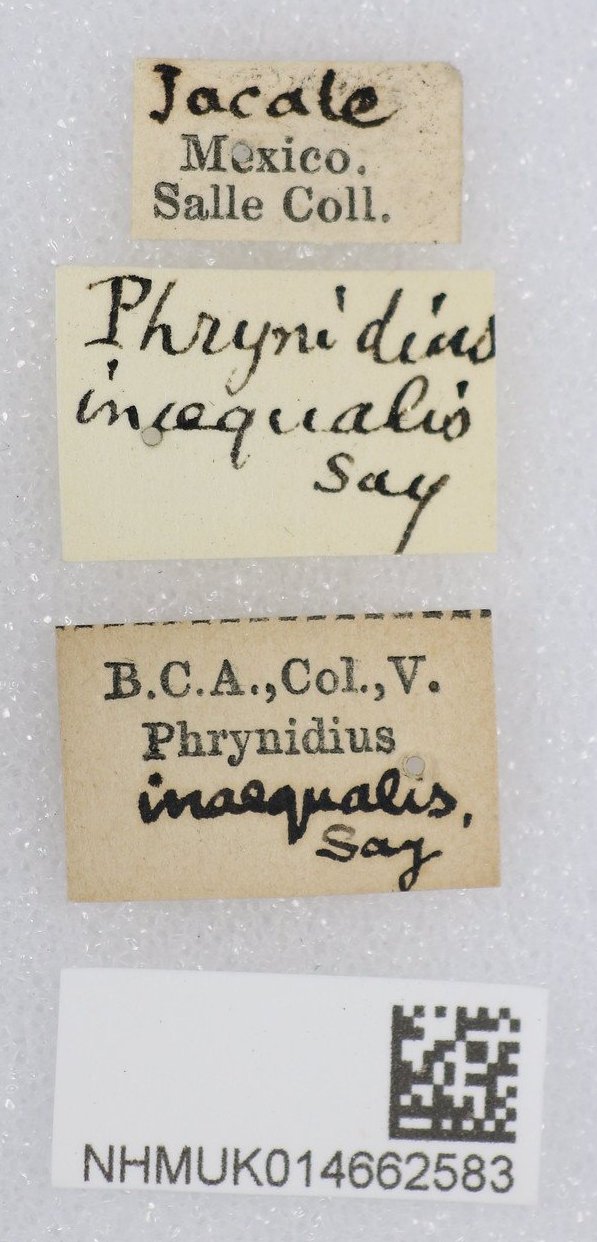 Jacale
Mexico.
Salle Coll.
Phrynidius
inæqualis
Say
B.C.A.,Col.,V.
Phrynidius
inaequalis,
Say
NHMUK014662583